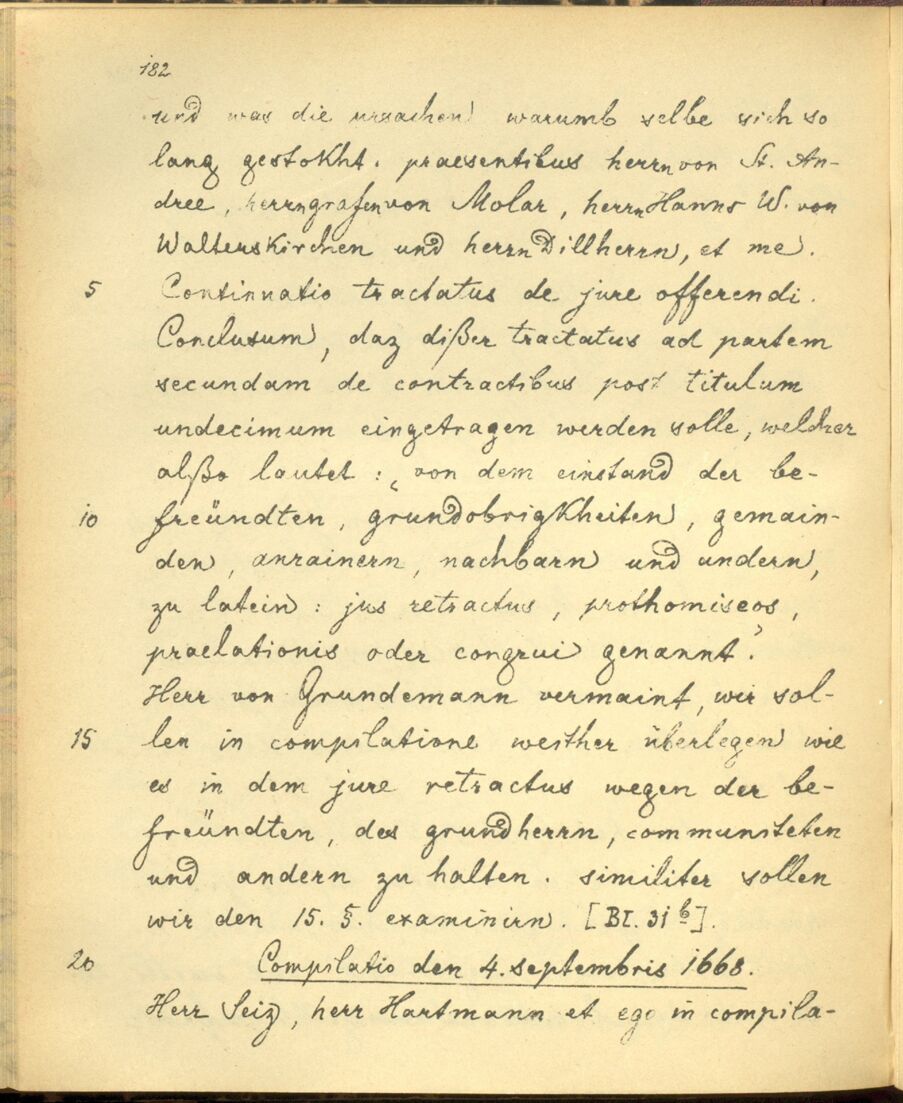 182
und was die ursachen warumb selbe sich so
lang gestokht. praesentibus herrn von St. An-
dree, herrn grafen von Molar, herrn Hanns W. von
Walterskirchen und herrn Dillherrn, et me.
5 Continuatio tractatus de jure offerendi.
Conclusum, daz dißer tractatus ad partem
secundam de contractibus post titulum
undecimum eingetragen werden solle, welcher
alßo lautet: „von dem einstand der be-
10 freündten, grundobrigkheiten, gemain-
den, anrainern, nachbarn und andern,
zu latein: jus retractus, prothomiseos,
praelationis oder congrui genannt".
Herr von Grundemann vermaint, wir sol-
15 len in compilatione weither überlegen wie
es in dem jure retractus wegen der be-
freündten, des grundherrn, communiteten
und andern zu halten. similiter sollen
wir den 15. §. examinirn. [Bl. 31 b].
20 Compilatio den 4. septembris 1668.
Herr Seiz, herr Hartmann et ego in compila-